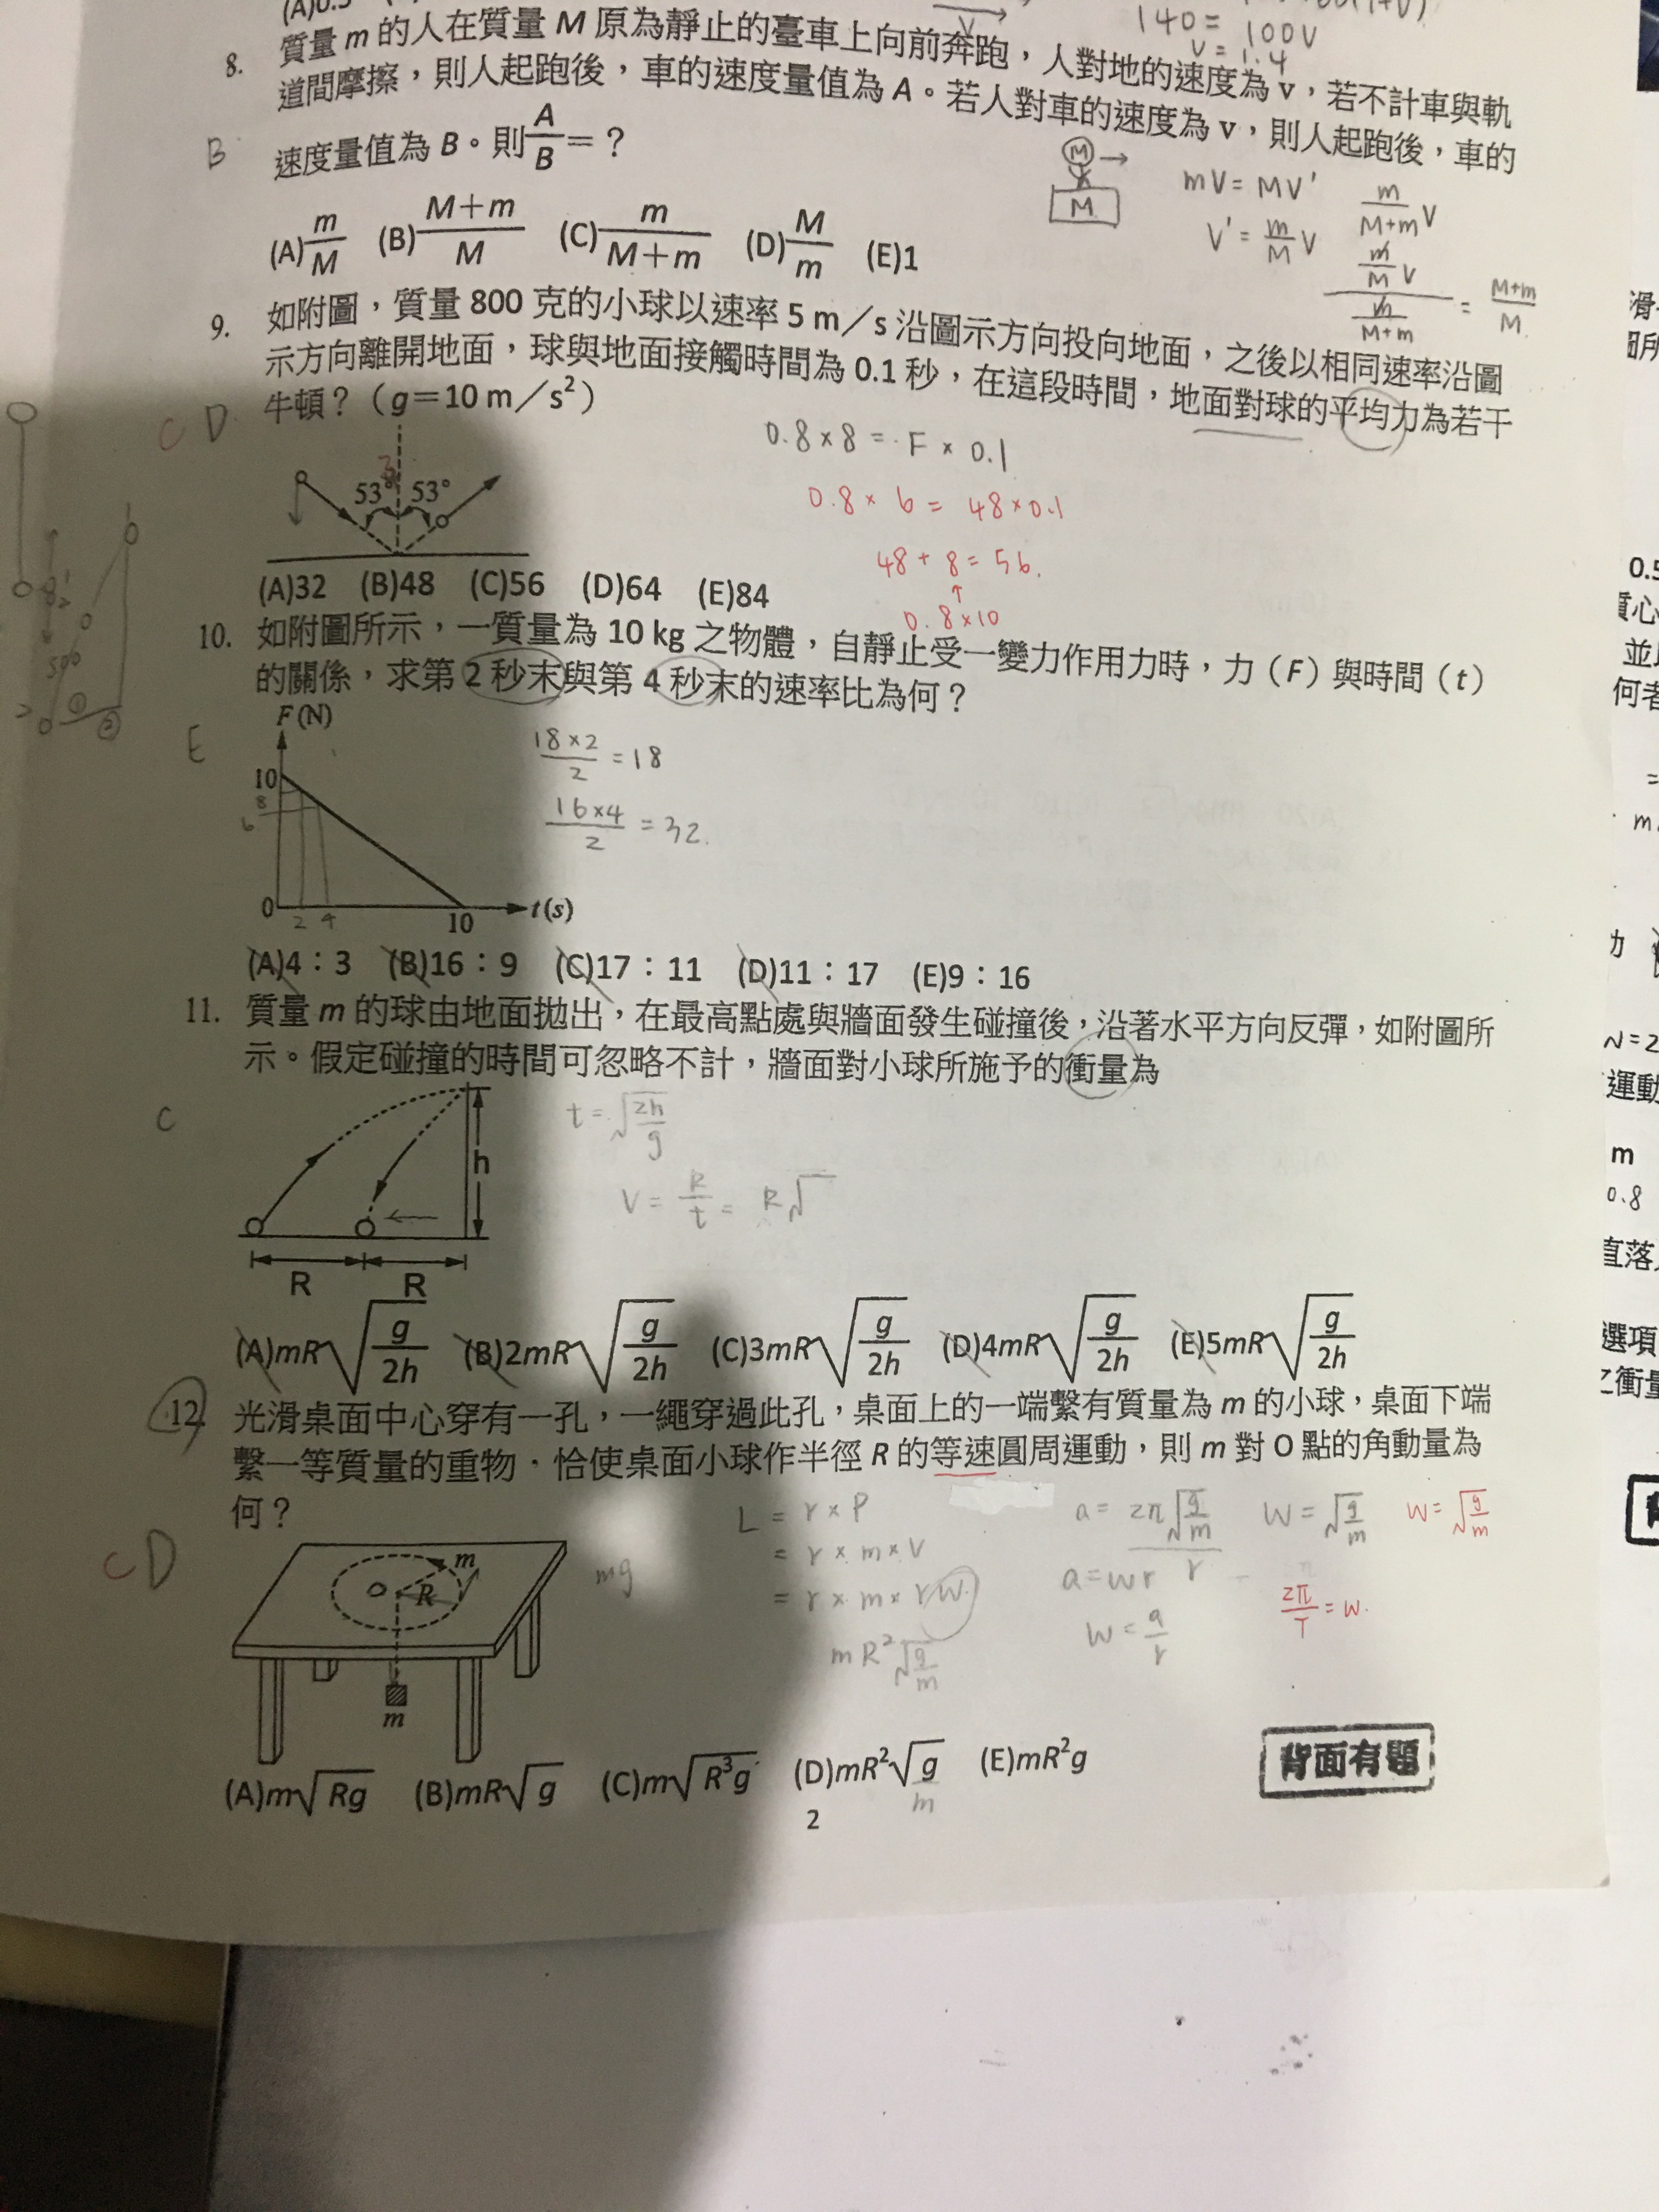 (A)0.5
140=
100V
V=1.4
V
8. 質量 m 的人在質量 M 原為靜止的臺車上向前奔跑，人對地的速度為 v，若不計車與軌
道間摩擦，則人起跑後，車的速度量值為 A。若人對車的速度為 v，則人起跑後，車的
B
速度量值為 B。則 A/B＝？
M
M
mV=MV'
V'=m/M V
m/(M+m) V
(m/M V)/(m/(M+m)) = (M+m)/M
(A) m/M (B) (M＋m)/M (C) m/(M＋m) (D) M/m (E)1
9. 如附圖，質量 800 克的小球以速率 5 m／s 沿圖示方向投向地面，之後以相同速率沿圖
示方向離開地面，球與地面接觸時間為 0.1 秒，在這段時間，地面對球的平均力為若干
牛頓？（g＝10 m／s²）
C D
0.8×8=F×0.1
0.8×6=48×0.1
48+8=56.
↑
0.8×10
3
53° 53°
(A)32 (B)48 (C)56 (D)64 (E)84
10. 如附圖所示，一質量為 10 kg 之物體，自靜止受一變力作用力時，力（F）與時間（t）
的關係，求第 2 秒末與第 4 秒末的速率比為何？
E
F(N)
10
8
6
0 2 4 10 t(s)
18×2/2=18
16×4/2=32.
(A)4：3 (B)16：9 (C)17：11 (D)11：17 (E)9：16
11. 質量 m 的球由地面拋出，在最高點處與牆面發生碰撞後，沿著水平方向反彈，如附圖所
示。假定碰撞的時間可忽略不計，牆面對小球所施予的衝量為
C
t=√(2h/g)
V=R/t=R√
h
R R
(A)mR√(g/2h) (B)2mR√(g/2h) (C)3mR√(g/2h) (D)4mR√(g/2h) (E)5mR√(g/2h)
12. 光滑桌面中心穿有一孔，一繩穿過此孔，桌面上的一端繫有質量為 m 的小球，桌面下端
繫一等質量的重物．恰使桌面小球作半徑 R 的等速圓周運動，則 m 對 O 點的角動量為
何？
C D
O R m
m
mg
L=r×P
=r×m×V
=r×m×rW
mR²√(g/m)
a=2π√(g/m)/r
a=wr
W=a/r
W=√(g/m)
W=√(g/m)
2π/T=W.
(A)m√(Rg) (B)mR√g (C)m√(R³g) (D)mR²√g (E)mR²g
m
背面有題
2
滑
圖所
0.5
質心
並
何者
=
m
力
N=2
運動
m
0.8
直落
選項
之衝量